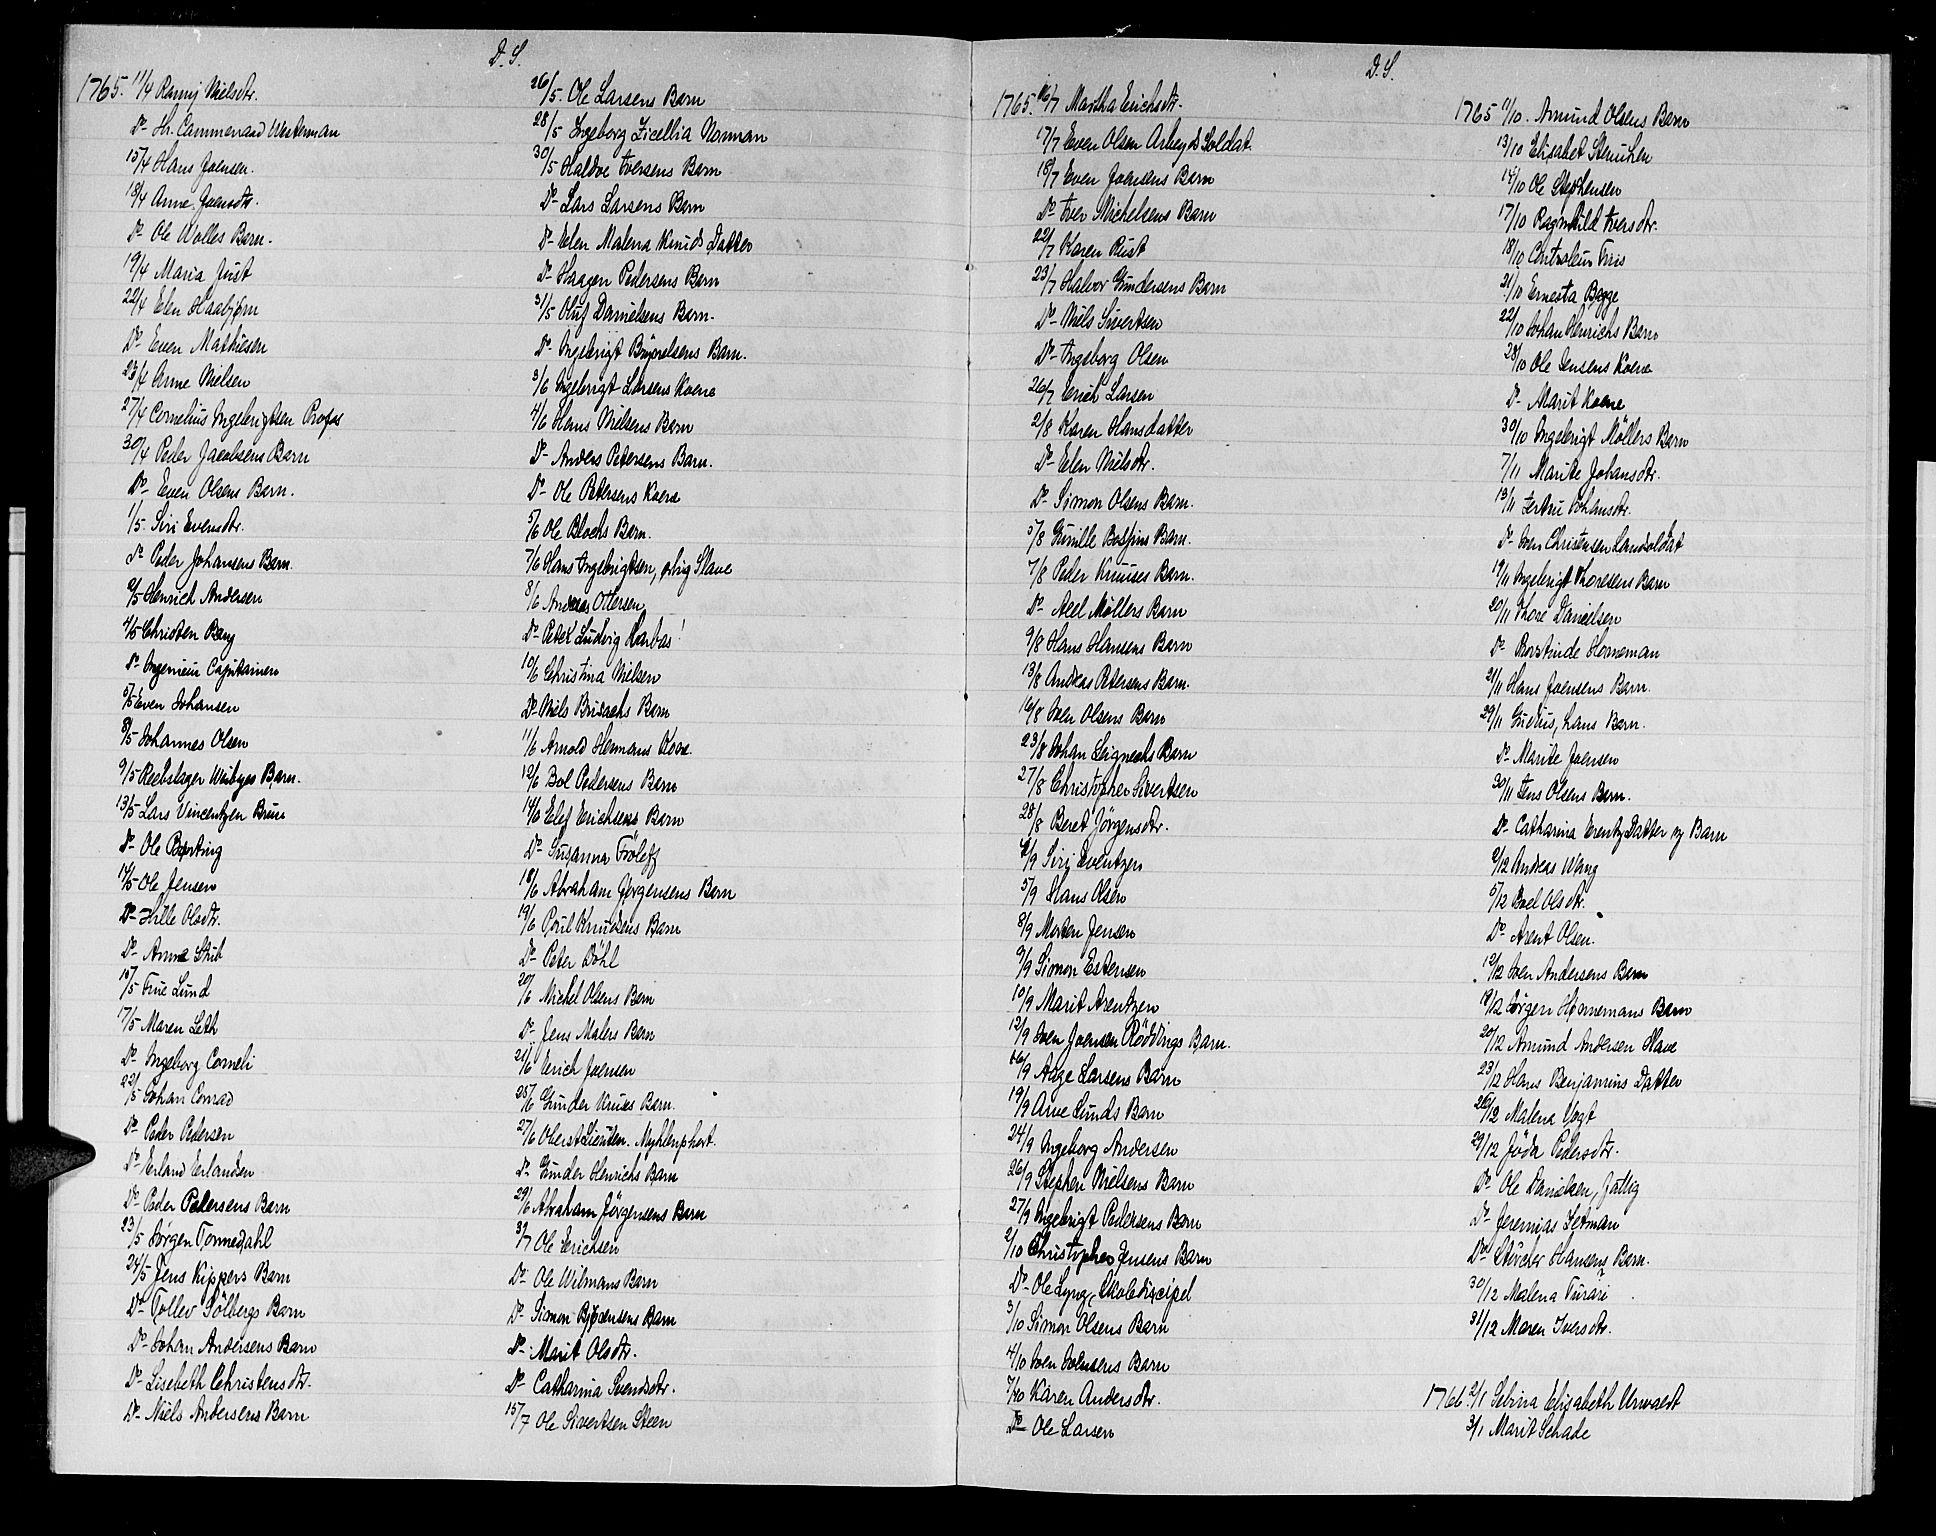 D. S.
1765. 11/4 Ranij Nielsdtr.
Do- Hr. Cammerraad Westerman
15/4 Hans Joensen.
18/4 Anne Joensdtr.
Do- Ole Wolles Barn.
19/4 Maria Just
22/4 Elen Haabjørn
Do- Even Mathiesen
23/4 Anne Nielsen
27/4 Cornelius Ingebrigtsen Profos
30/4 Peder Jacobsens Barn
Do- Even Olsens Barn.
1/5 Siri Evensdtr.
Do- Peder Johansens Barn.
2/5 Henrich Andersen
4/5 Christen Berg
Do- Ingenieur Capitainen
5/5 Even Johansen
8/5 Johannes Olsen
9/5 Reebslager Weibyes Barn.
13/5 Lars Vincentzen Bruun
Do- Ole Barting
14/5 Ole Jensen
Do- Hille Olsdtr.
Do- Anna Stub
15/5 Frue Lund
17/5 Maren Leth
Do- Ingeborg Corneli
22/5 Johan Conrad
Do- Peder Pedersen
Do- Erland Erlandsen
Do- Peder Pedersens Barn
23/5 Jørgen Tormedahl
24/5 Jens Kippers Barn
Do- Tollev Sølbergs Barn
Do- Johan Andersens Barn
Do- Lisebeth Christensdtr.
Do- Niels Andersens Barn
26/5. Ole Larsens Barn
28/5 Ingeborg Zicellia Norman
30/5 Haldoe Iversens Barn
Do- Lars Larsens Barn
Do- Elen Malena Knuds Datter
Do- Haagen Pedersens Barn
31/5 Oluf Danielsens Barn.
Do- Ingebrigt Bojoelsens Barn.
3/6 Ingebrigt Larsens Kone
4/6 Hans Nielsens Barn
Do- Anders Petersens Barn.
Do- Ole Petersens Kone
5/6 Ole Blochs Barn.
7/6 Hans Ingebrigtsen, ærlig Slave
8/6 Andreas Ottersen
Do- Peter Ludvig Harbas!
10/6 Christina Nielsen
Do- Niels Brusachs Barn
11/6 Arnold Hermans Kone
12/6 Bol Pedersens Barn
14/6 Elef Erichsens Barn
Do- Susanna Fröleff
18/6 Abraham Jørgensens Barn
19/6 Poul Knudsens Barn
Do- Peter Döhl
20/6 Michel Olsens Barn
Do- Jens Malers Barn
21/6 Erich Joensen
25/6 Gunder Kruses Barn.
27/6 Oberst Lieuten. Myhlenphort.
Do- Gunder Henrichs Barn
29/6 Abraham Jörgensens Barn
3/7 Ole Erichsen
Do- Ole Wilmans Barn
Do- Simon Bjørnsens Barn
Do- Marit Olsdtr.
Do- Catharina Svendsdtr.
15/7 Ole Sivertsen Steen
D. S.
1765. 16/7 Martha Erichsdtr.
17/7 Even Olsen Arbeyds Soldat
18/7 Even Joensens Barn
Do- Iver Michelsens Barn
22/7 Karen Rust
23/7 Halvor Gundersens Barn
Do- Niels Sivertsen
Do- Ingeborg Olsen
26/7 Erich Larsen
2/8 Karen Hansdatter
Do- Elen Nielsdtr.
Do- Simon Olsens Barn.
5/8 Gunille Bosfins Barn.
7/8 Peder Kruuses Barn.
Do- Axel Møllers Barn
9/8 Hans Hansens Barn
13/8 Andreas Petersens Barn.
16/8 Iven Olsens Barn
23/8 Johan Leignechs Barn
27/8 Christopher Sivertsen
28/8 Beret Jörgensdtr.
4/9 Sirj Eventzen
5/9 Hans Olsen
8/9 Morten Jensen
9/9 Simon Estensen
10/9 Marit Arentzen
12/9 Iven Joensen Röddings Barn.
16/9 Aage Larsens Barn
19/9 Arne Lunds Barn
24/9 Ingeborg Andersen
26/9 Stephen Nielsens Barn
27/9 Ingebrigt Pedersens Barn
2/10 Christopher Jensens Barn
Do- Ole Lyng, Skolediscipel
3/10 Simon Olsens Barn
4/10 Iven Iversens Barn
7/10 Karen Andersdtr.
Do Ole Larsen
1765 11/10. Amund Olsens Barn
13/10 Elisabet Steuchen
14/10 Ole Stephensen
17/10 Ragnhild Iversdtr.
18/10 Controleur Friis
21/10 Ernesta Bagge
22/10 Johan Henrichs Barn
28/10 Ole Jensens Kone
Do- Marit Kone
30/10 Ingebrigt Möllers Barn
7/11 Marite Johansdtr.
13/11 Zertru Johansdtr.
Do- Iven Christensen Landsoldat
19/11 Ingebrigt Thoresens Barn
20/11 Thore Danielsen
Do- Borstinde Horneman
21/11 Hans Joensens Barn.
29/11 Gudius, hans Barn.
Do- Marite Joensen
30/11 Jens Olsens Barn.
Do- Catharina Arentz Datter og Barn
2/12 Andreas Wang
5/12 Boel Olsdtr.
Do- Arent Olsen.
12/12 Iven Andersens Barn
18/12 Jörgen Hornemans Barn
20/12 Amund Andersen Slave
23/12 Hans Benjamins Datter
26/12 Malena Vogt
29/12 Jöda Pedersdtr.
Do- Ole Danielsen, fattig
Do- Jeremias Zetman
Do- Störcher Hansens Barn.
30/12 Malena Turari?
31/12 Maren Iversdtr.
1766. 2/1 Sebina Elisabeth Unvaert
3/1 Marit Schade